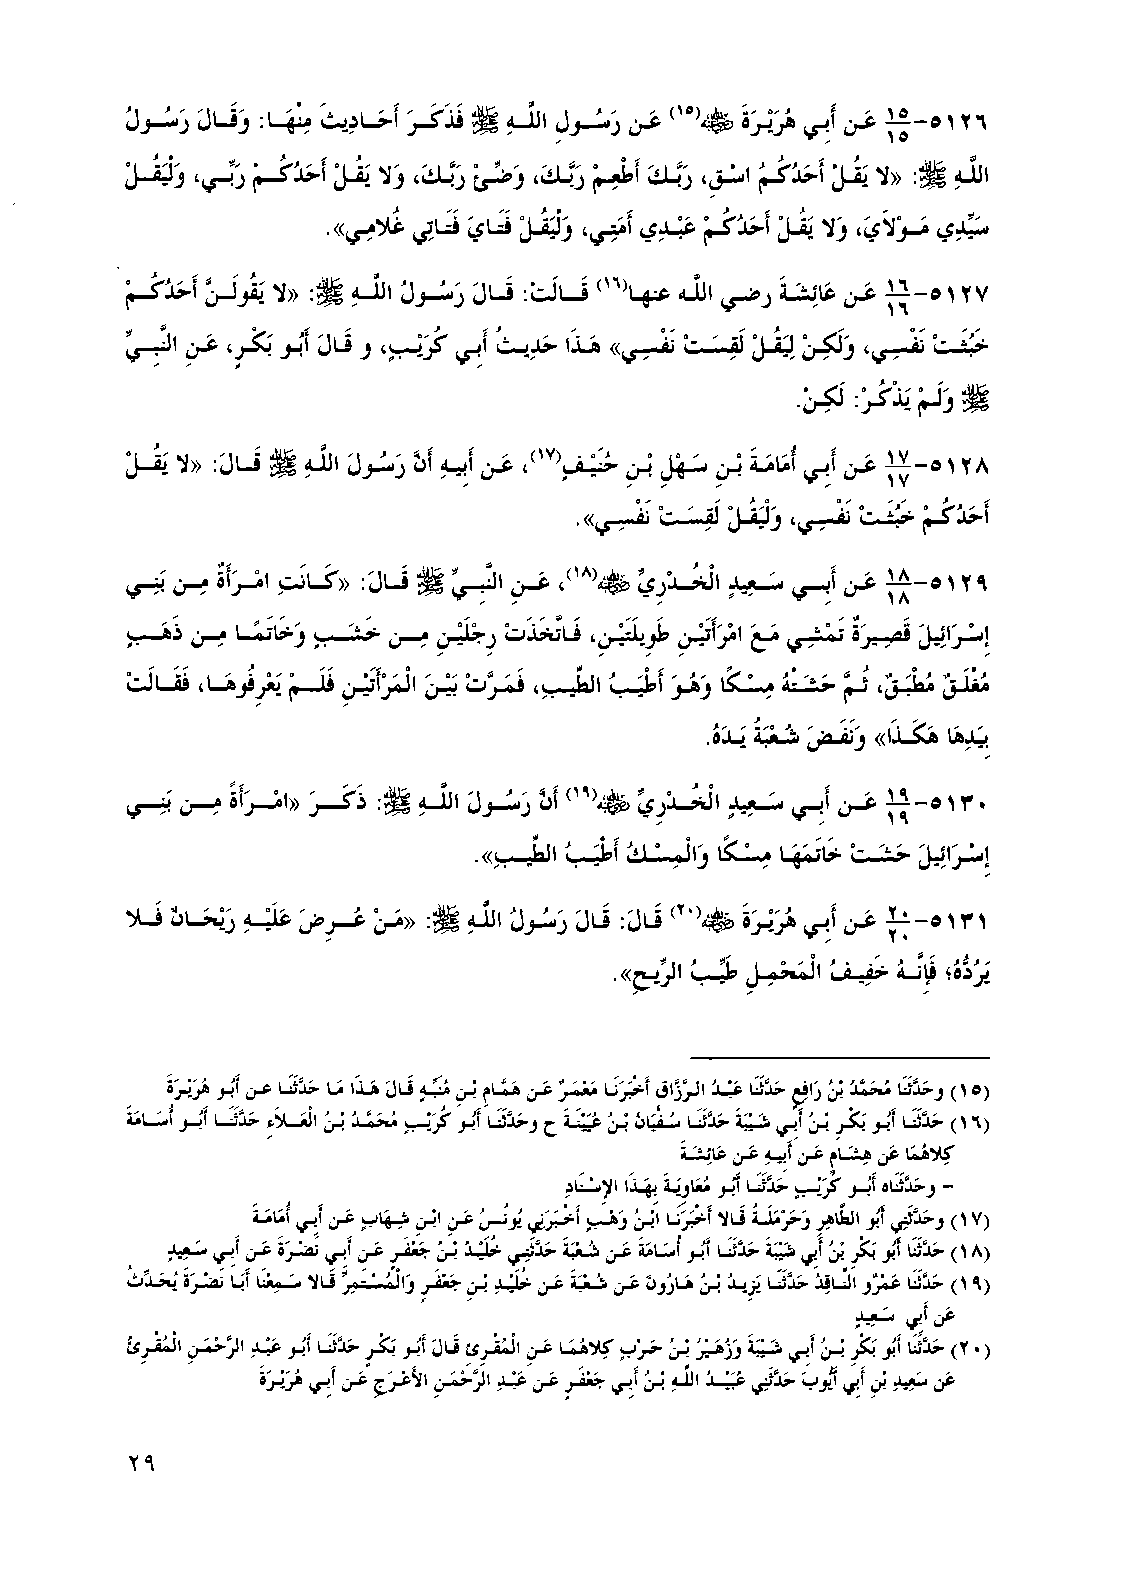 ٥١٢٦-١٥/١٥ عَن أَبِي هُرَيْرَةَ ﷺ(١٥) عَن رَسُولِ اللَّهِ ﷺ فَذَكَرَ أَحَادِيثَ مِنْهَا: وَقَالَ رَسُولُ
اللَّهِ ﷺ: «لا يَقُلْ أَحَدُكُمُ اسْقِ، رَبَّكَ أَطْعِمْ رَبَّكَ، وَضِّئْ رَبَّكَ، وَلا يَقُلْ أَحَدُكُمْ رَبِّي، وَلْيَقُلْ
سَيِّدِي مَوْلايَ، وَلا يَقُلْ أَحَدُكُمْ عَبْدِي أَمَتِي، وَلْيَقُلْ فَتَايَ فَتَاتِي غُلامِي».
٥١٢٧-١٦/١٦ عَن عَائِشَةَ رضي الله عنها(١٦) قَالَت: قَالَ رَسُولُ اللَّهِ ﷺ: «لا يَقُولَنَّ أَحَدُكُمْ
خَبُثَتْ نَفْسِي، وَلَكِنْ لِيَقُلْ لَقِسَتْ نَفْسِي» هَذَا حَدِيثُ أَبِي كُرَيْبٍ، و قَالَ أَبُو بَكْرٍ، عَنِ النَّبِيِّ
ﷺ وَلَمْ يَذْكُرْ: لَكِنْ.
٥١٢٨-١٧/١٧ عَن أَبِي أُمَامَةَ بْنِ سَهْلِ بْنِ حُنَيْفٍ(١٧)، عَن أَبِيهِ أَنَّ رَسُولَ اللَّهِ ﷺ قَالَ: «لا يَقُلْ
أَحَدُكُمْ خَبُثَتْ نَفْسِي، وَلْيَقُلْ لَقِسَتْ نَفْسِي».
٥١٢٩-١٨/١٨ عَن أَبِي سَعِيدٍ الْخُدْرِيِّ (١٨)، عَنِ النَّبِيِّ ﷺ قَالَ: «كَانَتِ امْرَأَةٌ مِن بَنِي
إِسْرَائِيلَ قَصِيرَةٌ تَمْشِي مَعَ امْرَأَتَيْنِ طَوِيلَتَيْنِ، فَاتَّخَذَتْ رِجْلَيْنِ مِن خَشَبٍ وَخَاتَمًا مِن ذَهَبٍ
مُغْلَقٌ مُطْبَقٌ، ثُمَّ حَشَتْهُ مِسْكًا وَهُوَ أَطْيَبُ الطِّيبِ، فَمَرَّتْ بَيْنَ الْمَرْأَتَيْنِ فَلَمْ يَعْرِفُوهَا، فَقَالَتْ
بِيَدِهَا هَكَذَا» وَنَفَضَ شُعْبَةُ يَدَهُ.
٥١٣٠-١٩/١٩ عَن أَبِي سَعِيدٍ الْخُدْرِيِّ (١٩) أَنَّ رَسُولَ اللَّهِ ﷺ: ذَكَرَ «امْرَأَةً مِن بَنِي
إِسْرَائِيلَ حَشَتْ خَاتَمَهَا مِسْكًا وَالْمِسْكُ أَطْيَبُ الطِّيبِ».
٥١٣١-٢٠/٢٠ عَن أَبِي هُرَيْرَةَ (٢٠) قَالَ: قَالَ رَسُولُ اللَّهِ ﷺ: «مَنْ عُرِضَ عَلَيْهِ رَيْحَانٌ فَلا
يَرُدُّهُ؛ فَإِنَّهُ خَفِيفُ الْمَحْمِلِ طَيِّبُ الرِّيحِ».
(١٥) وحَدَّثَنَا مُحَمَّدُ بْنُ رَافِعٍ حَدَّثَنَا عَبْدُ الرَّزَّاقِ أَخْبَرَنَا مَعْمَرٌ عَن هَمَّامِ بْنِ مُنَبِّهٍ قَالَ هَذَا مَا حَدَّثَنَا عن أَبُو هُرَيْرَةَ
(١٦) حَدَّثَنَا أَبُو بَكْرِ بْنُ أَبِي شَيْبَةَ حَدَّثَنَا سُفْيَانُ بْنُ عُيَيْنَةَ ح وحَدَّثَنَا أَبُو كُرَيْبٍ مُحَمَّدُ بْنُ الْعَلاءِ حَدَّثَنَا أَبُو أُسَامَةَ
كِلاهُمَا عَن هِشَامٍ عَن أَبِيهِ عَن عَائِشَةَ
– وحَدَّثَنَاه أَبُو كُرَيْبٍ حَدَّثَنَا أَبُو مُعَاوِيَةَ بِهَذَا الإِسْنَادِ
(١٧) وحَدَّثَنِي أَبُو الطَّاهِرِ وَحَرْمَلَةُ قَالا أَخْبَرَنَا ابْنُ وَهْبٍ أَخْبَرَنِي يُونُسُ عَنِ ابْنِ شِهَابٍ عَن أَبِي أُمَامَةَ
(١٨) حَدَّثَنَا أَبُو بَكْرِ بْنُ أَبِي شَيْبَةَ حَدَّثَنَا أَبُو أُسَامَةَ عَن شُعْبَةَ حَدَّثَنِي خُلَيْدُ بْنُ جَعْفَرٍ عَن أَبِي نَضْرَةَ عَن أَبِي سَعِيدٍ
(١٩) حَدَّثَنَا عَمْرٌو النَّاقِدُ حَدَّثَنَا يَزِيدُ بْنُ هَارُونَ عَن شُعْبَةَ عَن خُلَيْدِ بْنِ جَعْفَرٍ وَالْمُسْتَمِرِّ قَالا سَمِعْنَا أَبَا نَضْرَةَ يُحَدِّثُ
عَن أَبِي سَعِيدٍ
(٢٠) حَدَّثَنَا أَبُو بَكْرِ بْنُ أَبِي شَيْبَةَ وَزُهَيْرُ بْنُ حَرْبٍ كِلاهُمَا عَنِ الْمُقْرِئِ قَالَ أَبُو بَكْرٍ حَدَّثَنَا أَبُو عَبْدِ الرَّحْمَنِ الْمُقْرِئُ
عَن سَعِيدِ بْنِ أَبِي أَيُّوبَ حَدَّثَنِي عُبَيْدُ اللَّهِ بْنُ أَبِي جَعْفَرٍ عَن عَبْدِ الرَّحْمَنِ الأَعْرَجِ عَن أَبِي هُرَيْرَةَ
٢٩